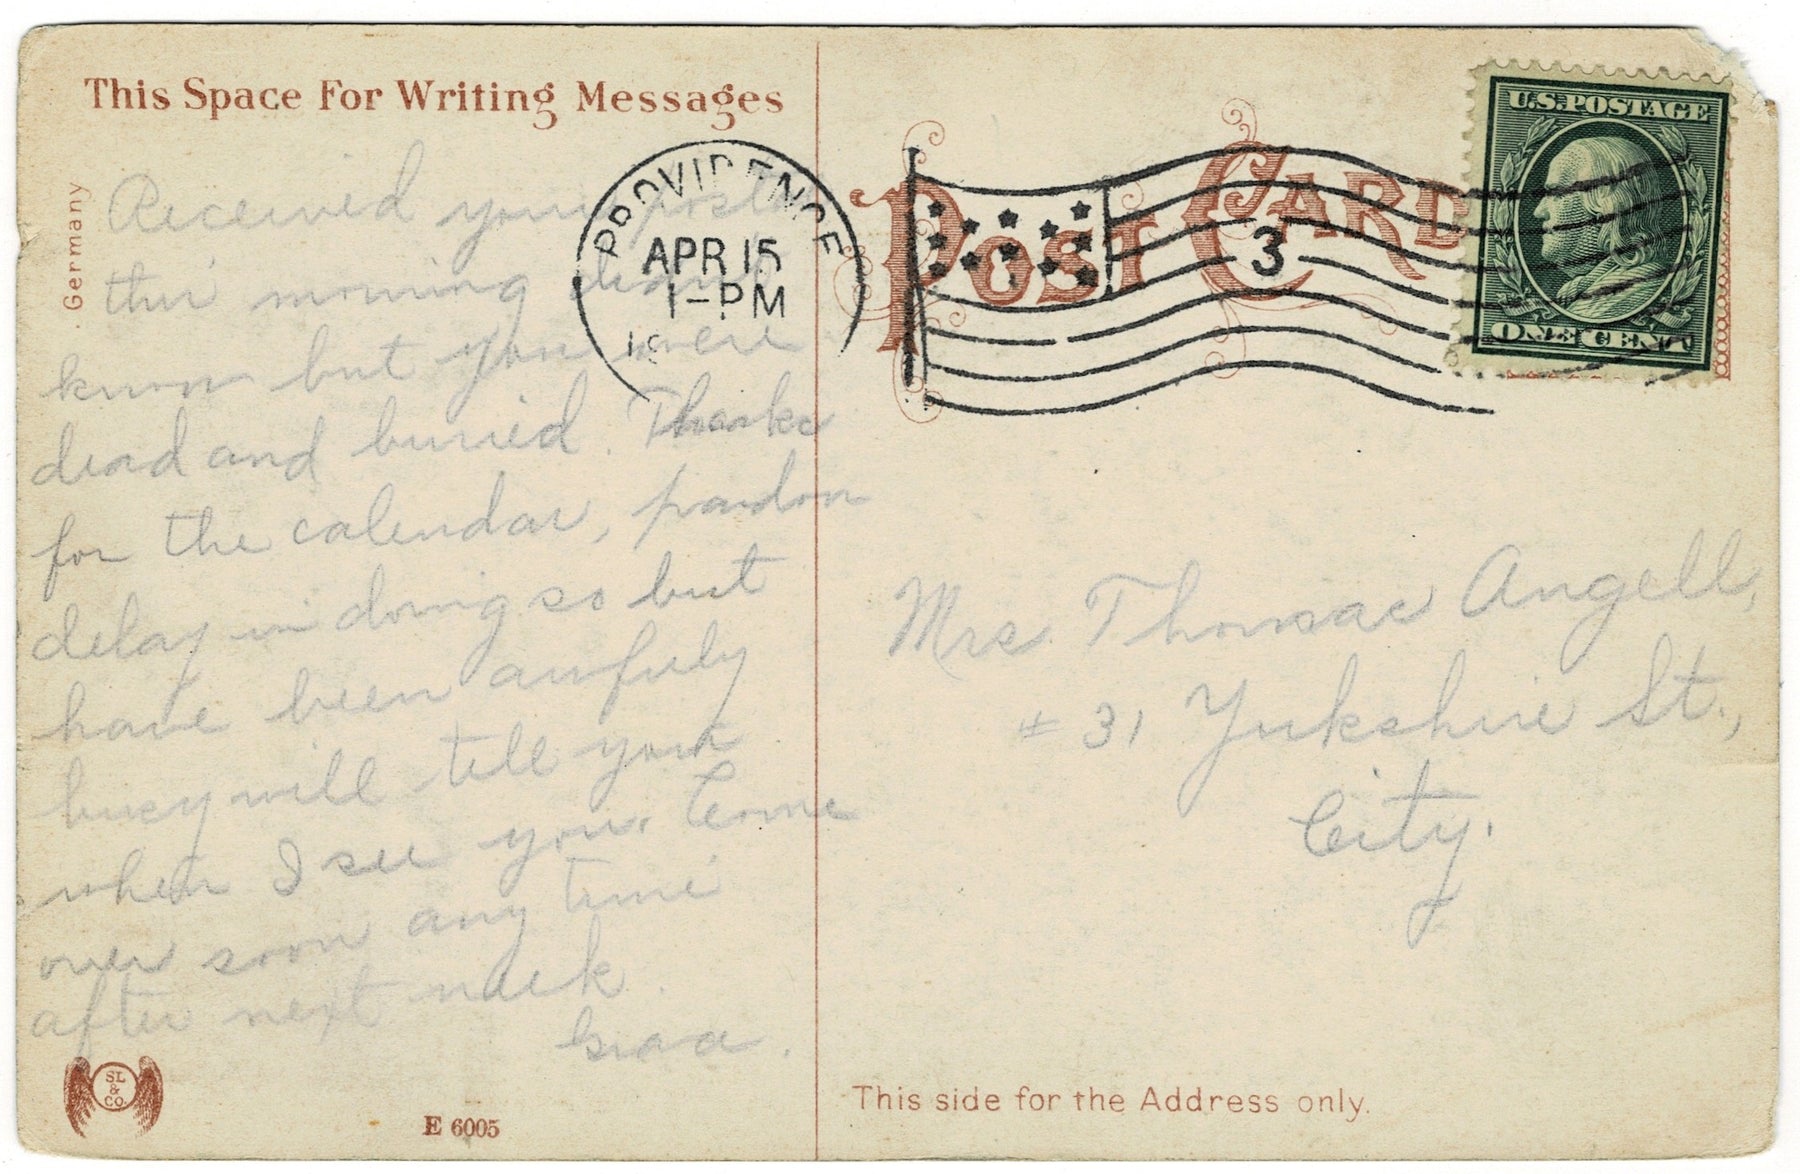 This Space For Writing Messages
Germany
Received your postal
this morning didn't
know but you were
dead and buried. Thanks
for the calendar, pardon
delay in doing so but
have been awfuly
busy will tell you
when I see you. Come
over soon any time
after next week.
SL
&
CO.
E 6005
PROVIDENCE
APR 15
1-PM
19
POST CARD
3
U.S. POSTAGE
ONE CENT
Mrs. Thomas Angell,
# 31 Yorkshire St.,
City.
This side for the Address only.